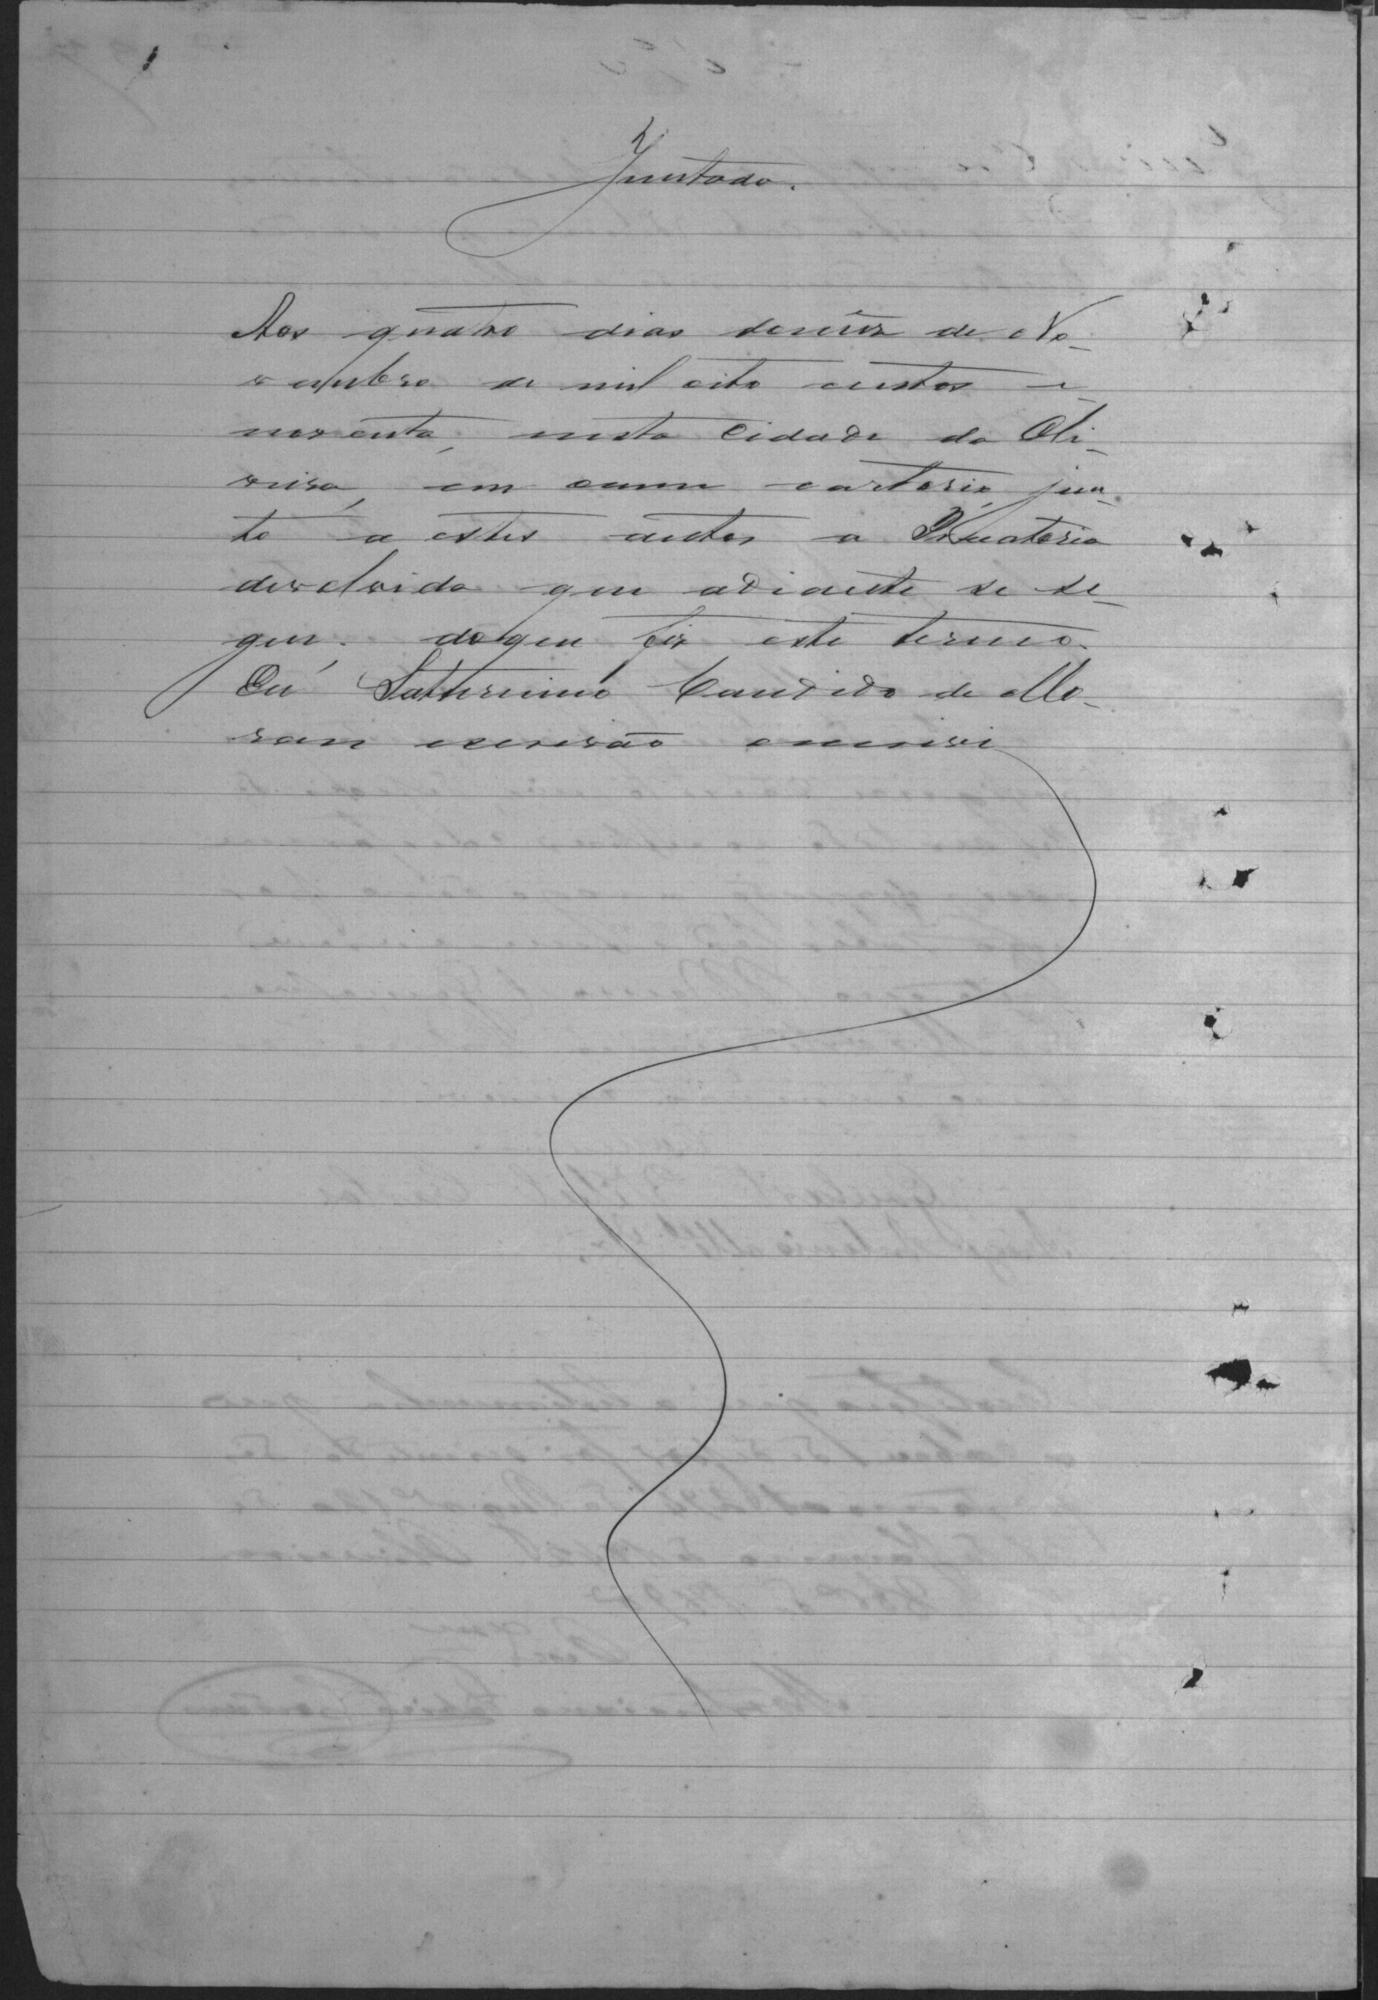 Juntada.
Aos quatro dias do mez de No-
vembro de mil oito centos e
noventa, nesta Cidade da Oli-
veira, em o meu cartorio, jun-
to a estes autos a Precatoria
devolvida que adiante se se-
gue. do que fiz este termo.
Eu Saturnino Candido de Mo-
raes escrivão escrevi